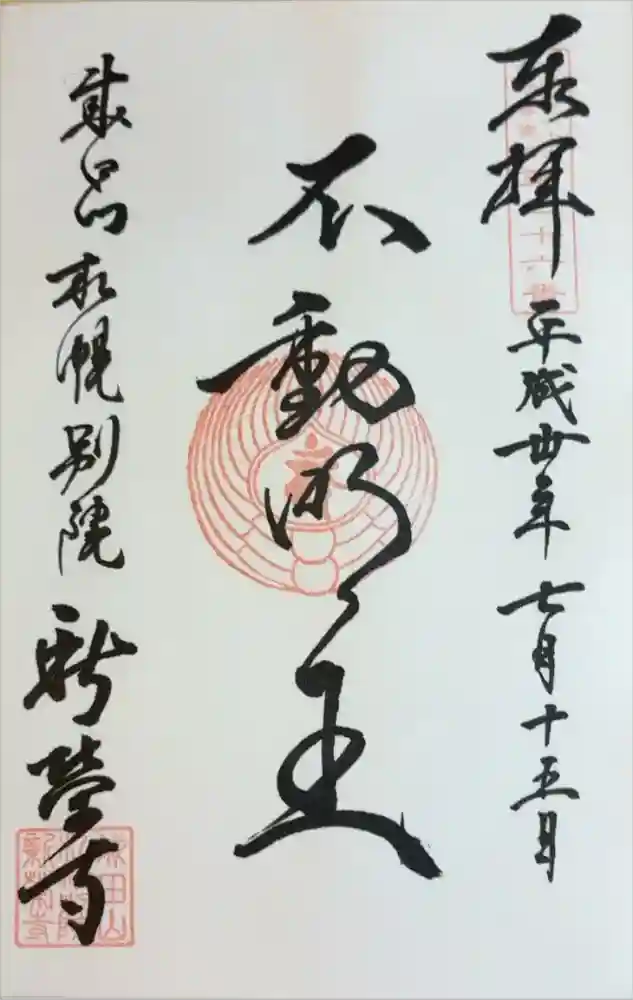 奉拝 平成卅年七月十五日
不動明王
成田山 札幌別院 新榮寺
成田山
札幌別院
新榮寺